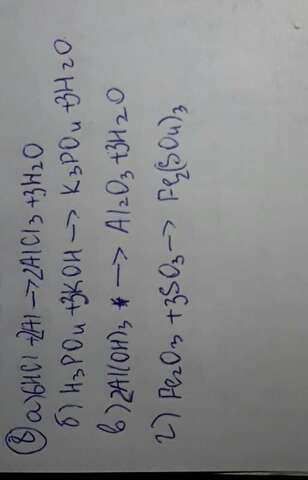 ⑧ а) 6HCl + 2Al —> 2AlCl3 + 3H2O
б) H3PO4 + 3KOH —> K3PO4 + 3H2O
в) 2Al(OH)3 —> Al2O3 + 3H2O
г) Fe2O3 + 3SO3 —> Fe2(SO4)3